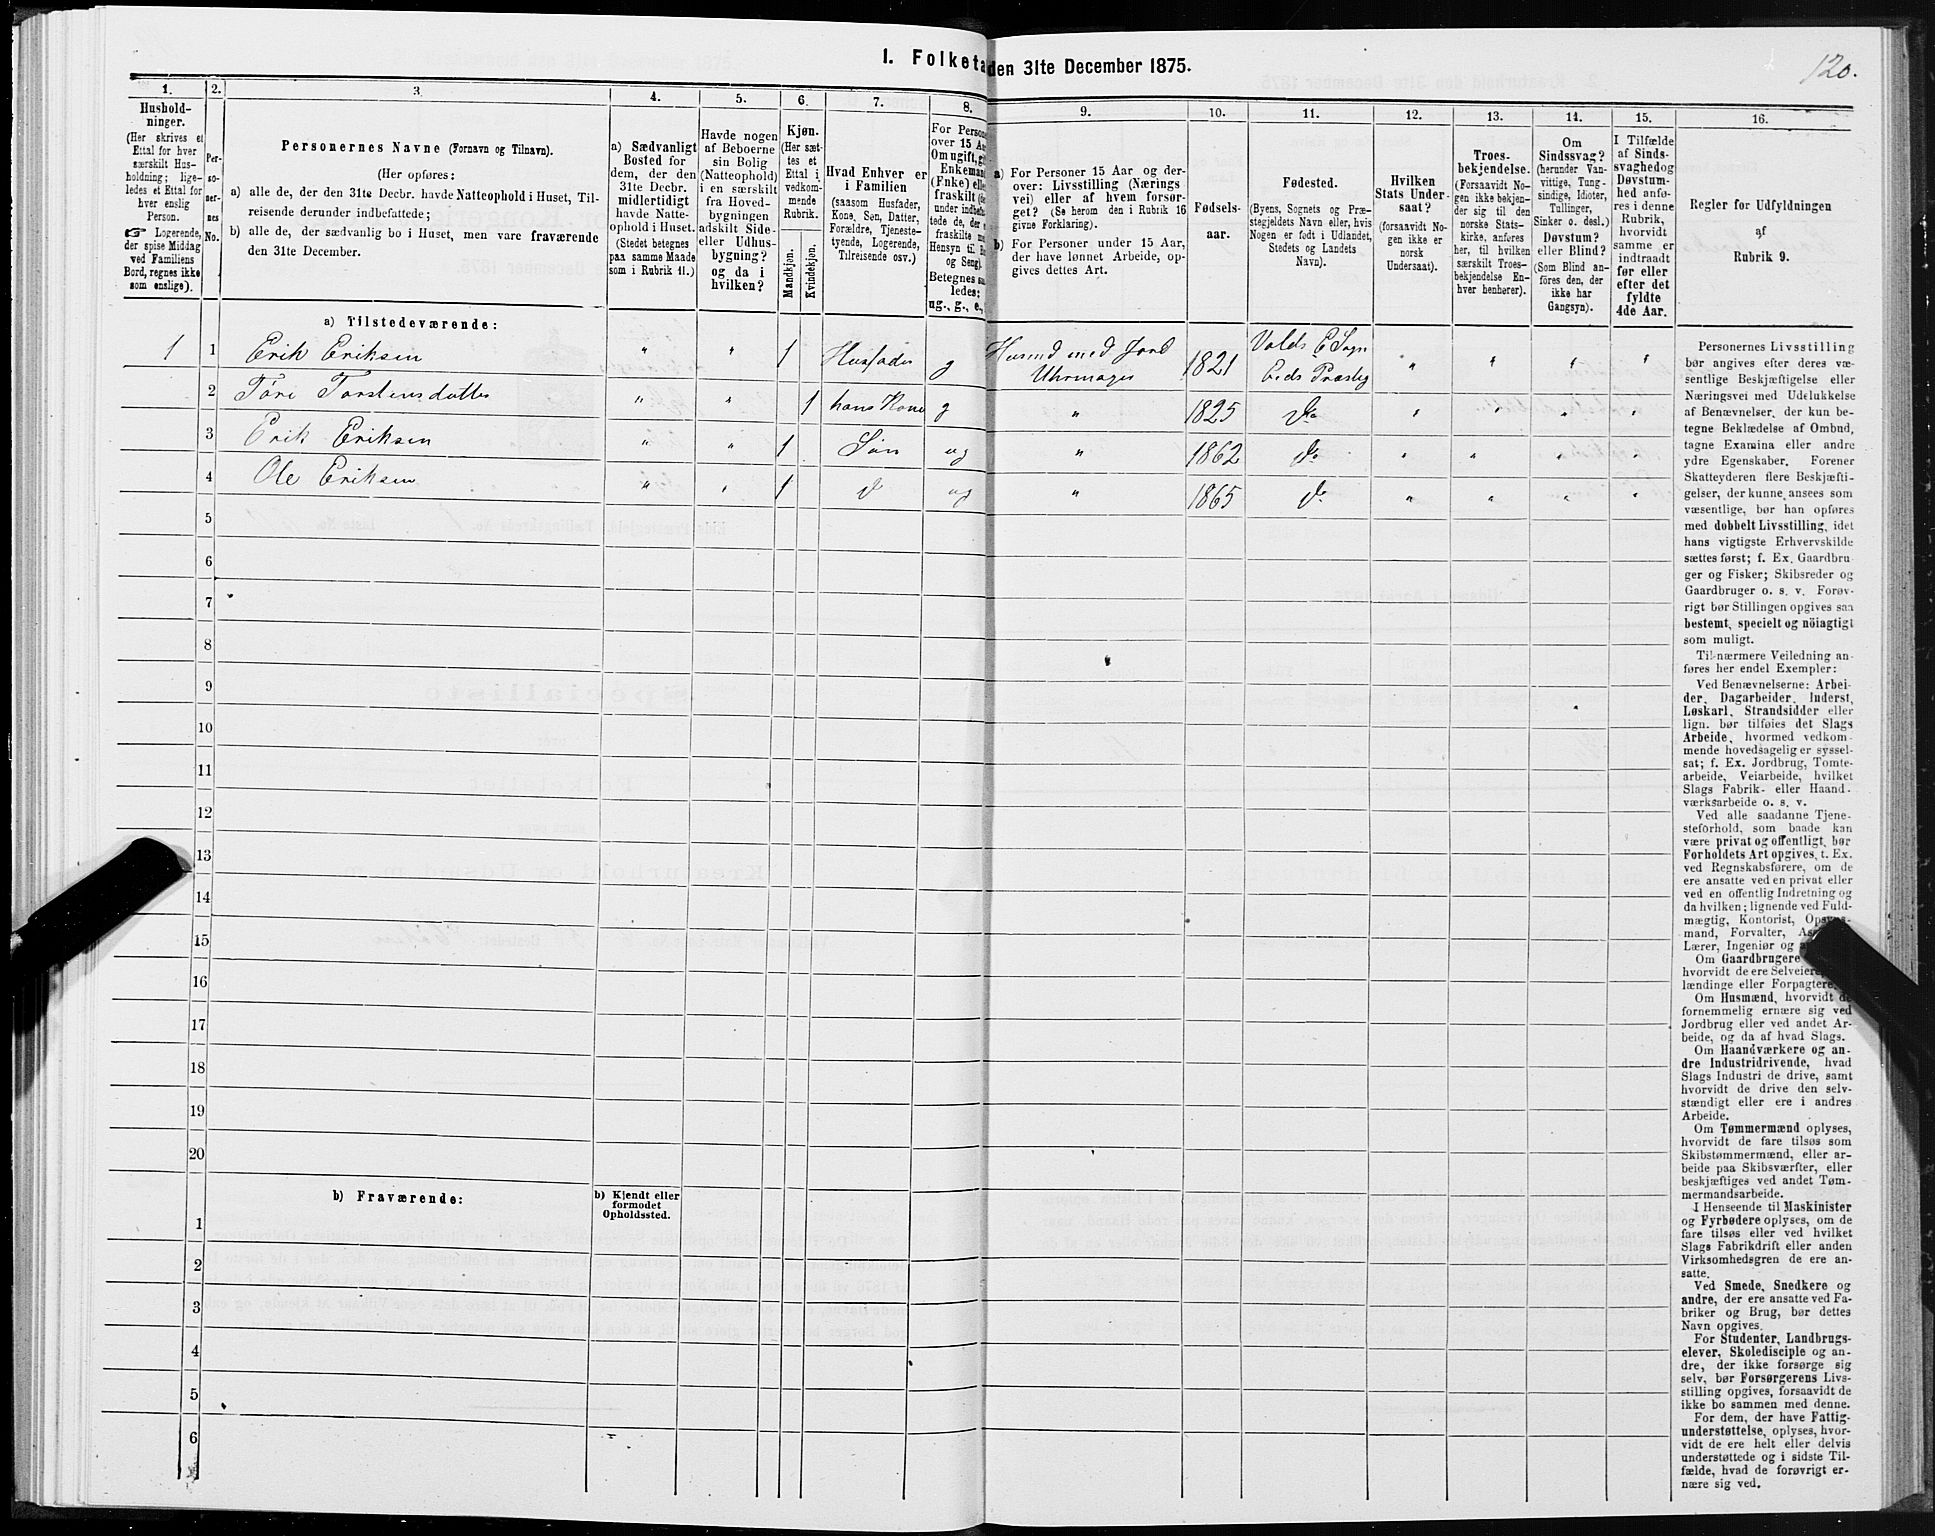 I. Folketæ
den 31te December 1875.
120.
1.
2.
3.
4.
5.
6.
7.
8.
9.
10.
11.
12.
13.
14.
15.
16.
Hushold-
ninger.
(Her skrives et
Ettal for hver
særskilt Hus-
holdning; lige-
ledes et Ettal for
hver enslig
Person.
☞ Logerende,
der spise Middag
ved Familiens
Bord, regnes ikke
som enslige).
Per-
so-
ner-
nes
No.
Personernes Navne (Fornavn og Tilnavn).
(Her opføres:
a) alle de, der den 31te Decbr. havde Natteophold i Huset, Til-
reisende derunder indbefattede;
b) alle de, der sædvanlig bo i Huset, men vare fraværende
den 31te December.
a) Sædvanligt
Bosted for
dem, der den
31te Decbr.
midlertidigt
havde Natte-
ophold i Huset.
(Stedet betegnes
paa samme Maade
som i Rubrik 11.)
Havde nogen
af Beboerne
sin Bolig
(Natteophold)
i en særskilt
fra Hoved-
bygningen
adskilt Side-
eller Udhus-
bygning?
og da i
hvilken?
Kjøn.
(Her sæt-
tes et
Ettal i
vedkom-
mende
Rubrik.
Mandkjøn.
Kvindekjøn.
Hvad Enhver er
i Familien
(saasom Husfader,
Kone, Søn, Datter,
Forældre, Tjeneste-
tyende, Logerende,
Tilreisende osv.)
For Persone
over 15 Aar
Om ugift, g
Enkemand
(Enke) elle
fraskilt
under indbef
tede de, der
fraskilte
Hensyn til
og Seng).
Betegnes
ledes:
ug., g., e.,
a) For Personer 15 Aar og der-
over: Livsstilling (Nærings-
vei) eller af hvem forsør-
get? (Se herom den i Rubrik 16
givne Forklaring).
b) For Personer under 15 Aar,
der have lønnet Arbeide, op-
gives dettes Art.
Fødsels-
aar.
Fødested.
(Byens, Sognets og Præ-
stegjeldets Navn eller, hvis
Nogen er født i Udlandet,
Stedets og Landets
Navn).
Hvilken
Stats Under-
saat?
(forsaavidt No-
gen ikke er
norsk
Undersaat).
Troes-
bekjendelse.
(Forsaavidt No-
gen ikke bekjen-
der sig til den
norske Stats-
kirke, anføres
her, til hvilken
særskilt Troes-
bekjendelse En-
hver henhører).
Om
Sindssvag?
(herunder Van-
vittige, Tung-
sindige, Idioter,
Tullinger,
Sinker o. desl.)
Døvstum?
eller Blind?
(Som Blind an-
føres den, der
ikke har
Gangsyn).
I Tilfælde
af Sinds-
svaghed og
Døvstum-
hed anfø-
res i denne
Rubrik,
hvorvidt
samme er
indtraadt
før eller
efter det
fyldte
4de Aar.
Regler for Udfyldningen
af
Rubrik 9.
a) Tilstedeværende:
1 1 Erik Eriksen " " 1 Husfader g Husmd med Jord
Uhrmager 1821 Volds E Sogn
Eids Præstg " " " "
2 Töri Torstensdatter " " 1 hans Kone g " 1825 do " " " "
3 Erik Eriksen " " 1 Søn ug " 1862 do " " " "
4 Ole Eriksen " " 1 do ug " 1865 do " " " "
5
6
7
8
9
10
11
12
13
14
15
16
17
18
19
20
b) Fraværende:
b) Kjendt eller
formodet
Opholdssted.
1
2
3
4
5
6
Personernes Livsstilling
bør angives efter deres væ-
sentlige Beskjæftigelse eller
Næringsvei med Udelukkelse
af Benævnelser, der kun be-
tegne Beklædelse af Ombud,
tagne Examina eller andre
ydre Egenskaber. Forener
Skatteyderen flere Beskjæfti-
gelser, der kunne ansees som
væsentlige, bør han opføres
med dobbelt Livsstilling, idet
hans vigtigste Erhvervskilde
sættes først; f. Ex. Gaardbru-
ger og Fisker; Skibsreder og
Gaardbruger o. s. v. Forøv-
rigt bør Stillingen opgives saa
bestemt, specielt og nöiagtigt
som muligt.
Til nærmere Veiledning an-
føres her endel Exempler:
Ved Benævnelserne: Arbei-
der, Dagarbeider, Inderst,
Løskarl, Strandsidder eller
lign. bør tilføies det Slags
Arbeide, hvormed vedkom-
mende hovedsagelig er syssel-
sat; f. Ex. Jordbrug, Tomte-
arbeide, Veiarbeide, hvilket
Slags Fabrik- eller Haand-
værksarbeide o. s. v.
Ved alle saadanne Tjene-
steforhold, som baade kan
være privat og offentligt, bør
Forholdets Art opgives, t. Ex.
ved Regnskabsførere, om de
ere ansatte ved en privat eller
ved en offentlig Indretning og
da hvilken; lignende ved Fuld-
mægtig, Kontorist, Opsyns-
mand, Forvalter, As
Lærer, Ingeniør og a
Om Gaardbrugere
hvorvidt de ere Selveiere,
lændinge eller Forpagtere.
Om Husmænd, hvorvidt de
fornemmelig ernære sig ved
Jordbrug eller ved andet Ar-
beide, og da af hvad Slags.
Om Haandværkere og an-
dre Industridrivende, hvad
Slags Industri de drive, samt
hvorvidt de drive den selv-
stændigt eller ere i andres
Arbeide.
Om Tømmermænd oplyses,
hvorvidt de fare tilsøs som
Skibstømmermænd, eller ar-
beide paa Skibsværfter, eller
beskjæftiges ved andet Tøm-
mermandsarbeide.
I Henseende til Maskinister
og Fyrbødere oplyses, om de
fare tilsøs eller ved hvilket
Slags Fabrikdrift eller anden
Virksomhedsgren de ere an-
satte.
Ved Smede, Snedkere og
andre, der ere ansatte ved Fa-
briker og Brug, bør dettes
Navn opgives.
For Studenter, Landbrugs-
elever, Skoledisciple og an-
dre, der ikke forsørge sig
selv, bør Forsørgerens Livs-
stilling opgives, forsaavidt de
ikke bo sammen med denne.
For dem, der have Fattig-
understøttelse, oplyses, hvor-
vidt de ere helt eller delvis
understøttede og i sidste Til-
fælde, hvad de forøvrigt er-
nære sig ved.